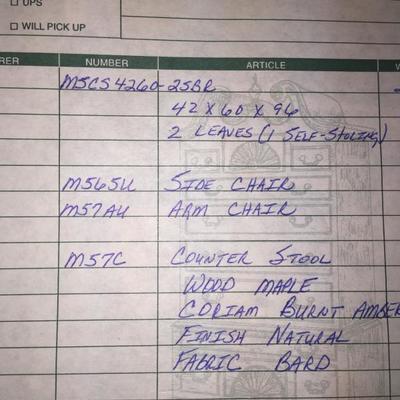 ☐ UPS
☐ WILL PICK UP
RER NUMBER ARTICLE W
M5CS4260-25BR
42 X 60 X 96
2 LEAVES (1 SELF-STORING)
M565U SIDE CHAIR
M57AU ARM CHAIR
M57C COUNTER STOOL
WOOD MAPLE
CORIAM BURNT AMBER
FINISH NATURAL
FABRIC BARD